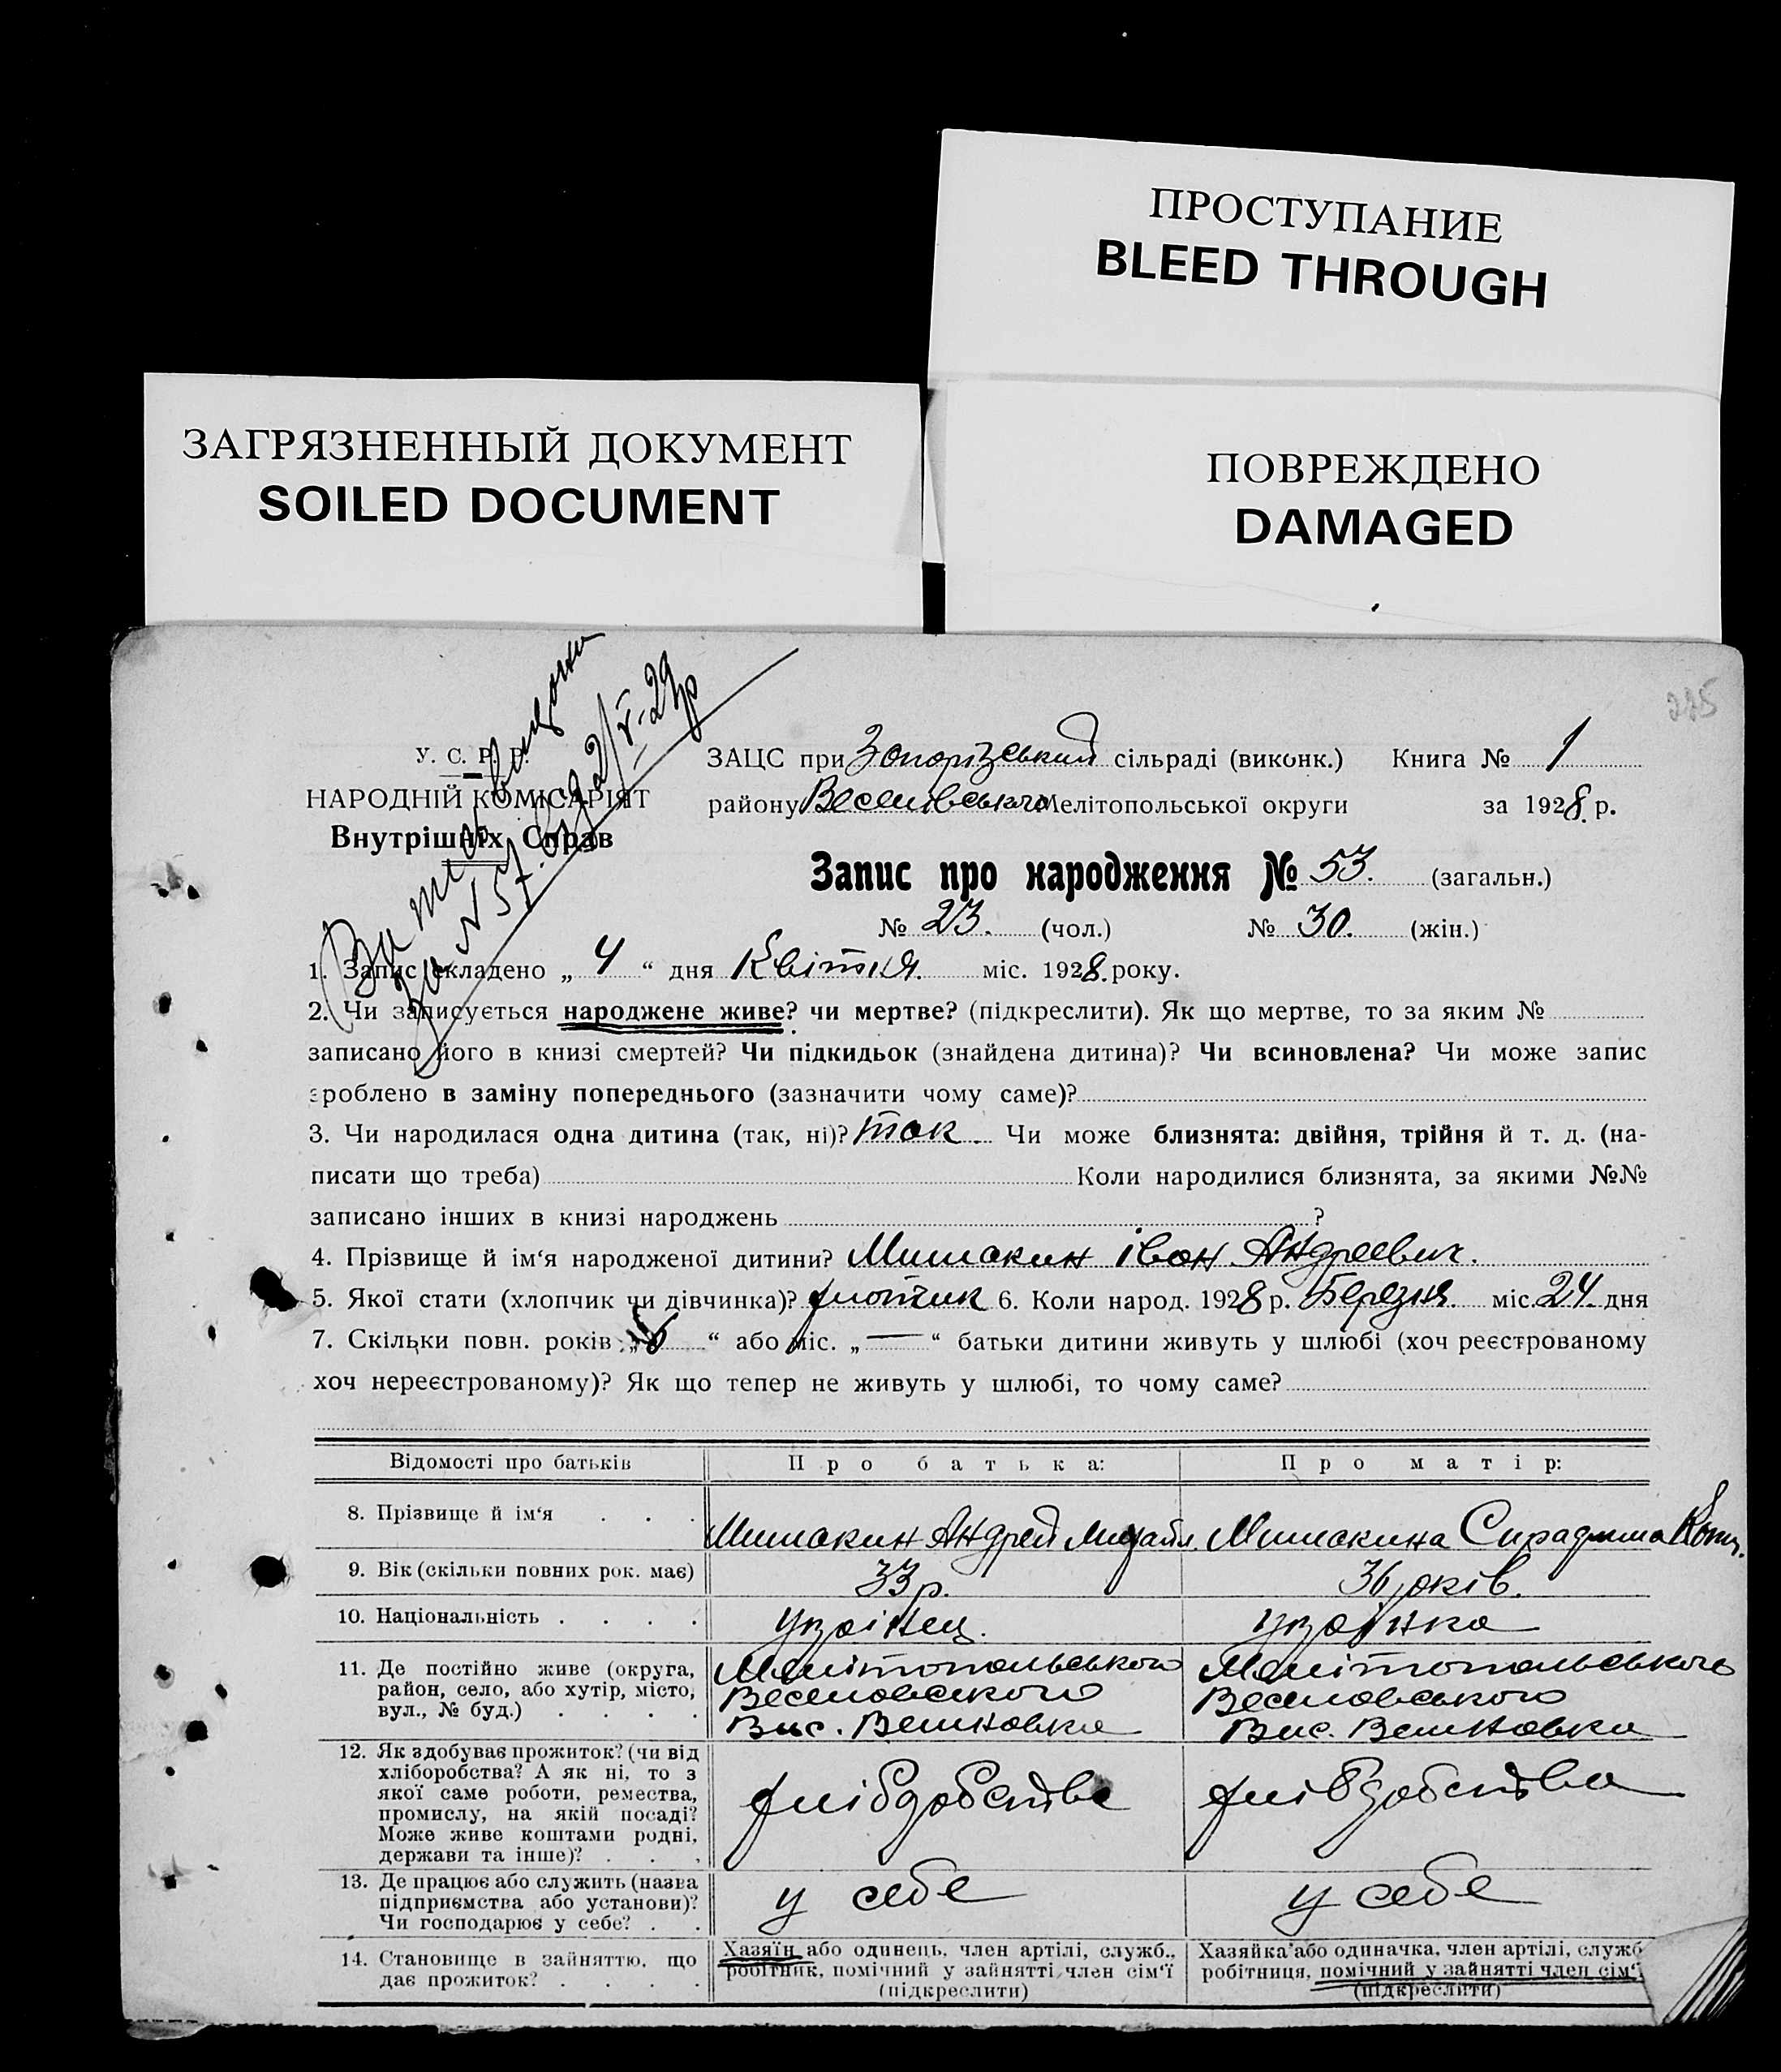 ПРОСТУПАНИЕ
BLEED THROUGH
ЗАГРЯЗНЕННЫЙ ДОКУМЕНТ
SOILED DOCUMENT
ПОВРЕЖДЕНО
DAMAGED
225
У. С. Р. Р.
НАРОДНІЙ КОМІСАРІЯТ
Внутрішніх Справ
№ 57. 2/V-29р
ЗАЦС при Запорізський сільраді (виконк.) Книга № 1
району Веселівського Мелітопольської округи за 1928 р.
Запис про народження № 53. (загальн.)
№ 23. (чол.) № 30. (жін.)
1. Запис складено „ 4 “ дня Квітня. міс. 1928. року.
2. Чи записується народжене живе? чи мертве? (підкреслити). Як що мертве, то за яким №
записано його в книзі смертей? Чи підкидьок (знайдена дитина)? Чи всиновлена? Чи може запис
зроблено в заміну попереднього (зазначити чому саме)?
3. Чи народилася одна дитина (так, ні)? так. Чи може близнята: двійня, трійня й т. д. (на-
писати що треба) Коли народилися близнята, за якими №№
записано інших в книзі народжень ?
4. Прізвище й ім‘я народженої дитини? Мишакин Іван Андреевич.
5. Якої стати (хлопчик чи дівчинка)? хлопчик 6. Коли народ. 1928 р. Березня. міс. 24. дня
7. Скільки повн. років „ “ або міс. „ — “ батьки дитини живуть у шлюбі (хоч реєстрованому
хоч нереєстрованому)? Як що тепер не живуть у шлюбі, то чому саме?
Відомості про батьків Про батька: Про матір:
8. Прізвище й ім‘я . . . Мишакин Андрей Михайл. Мишакина
9. Вік (скільки повних рок. має) 33 р. 36 років.
10. Національність . . . . україн̄ец. українка
11. Де постійно живе (округа, Мелітопольського Мелітопольського
район, село, або хутір, місто, Веселовського Веселовського
вул., № буд.) . . . . Вис. Вис.
12. Як здобуває прожиток? (чи від
хліборобства? А як ні, то з
якої саме роботи, ремества, хлібробства хлібробства
промислу, на якій посаді?
Може живе коштами родні,
держави та інше)? . . .
13. Де працює або служить (назва
підприємства або установи)? у себе у себе
Чи господарює у себе? . .
14. Становище в зайняттю, що Хазяїн або одинець, член артілі, служб., Хазяйка або одиначка, член артілі, служб
дає прожиток? . . . . робітник, помічний у зайнятті член сім‘ї робітниця, помічний у зайнятті член сім‘
(підкреслити) (підкреслити)